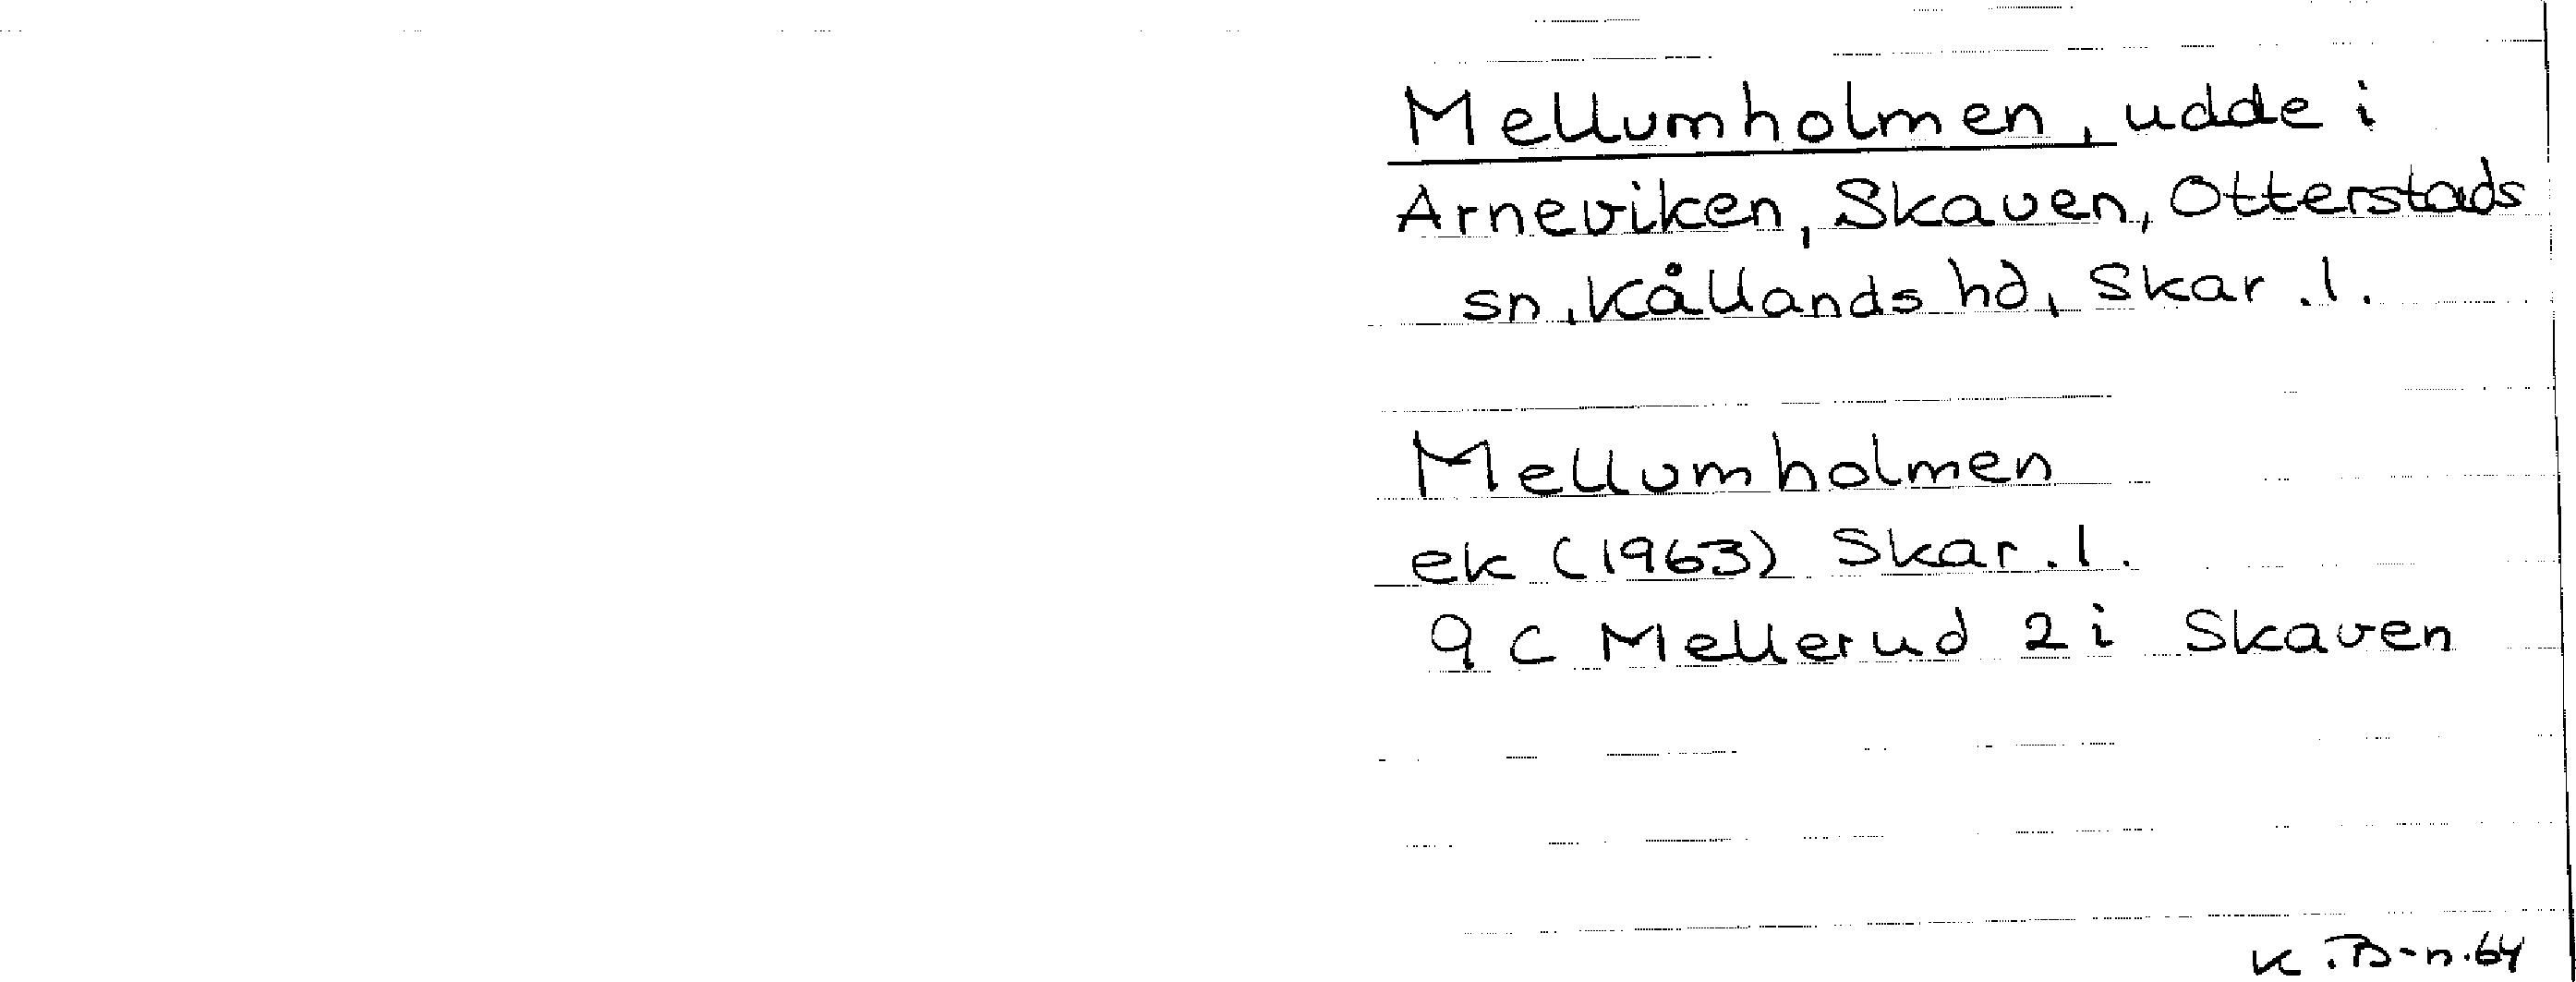 Mellumholmen, udde i
Arneviken, Skaven, Otterstads
sn, Kållands hd, Skar. l.
Mellumholmen
ek (1963) Skar. l.
9 C Mellerud 2 i Skaven
K. B-n. 64